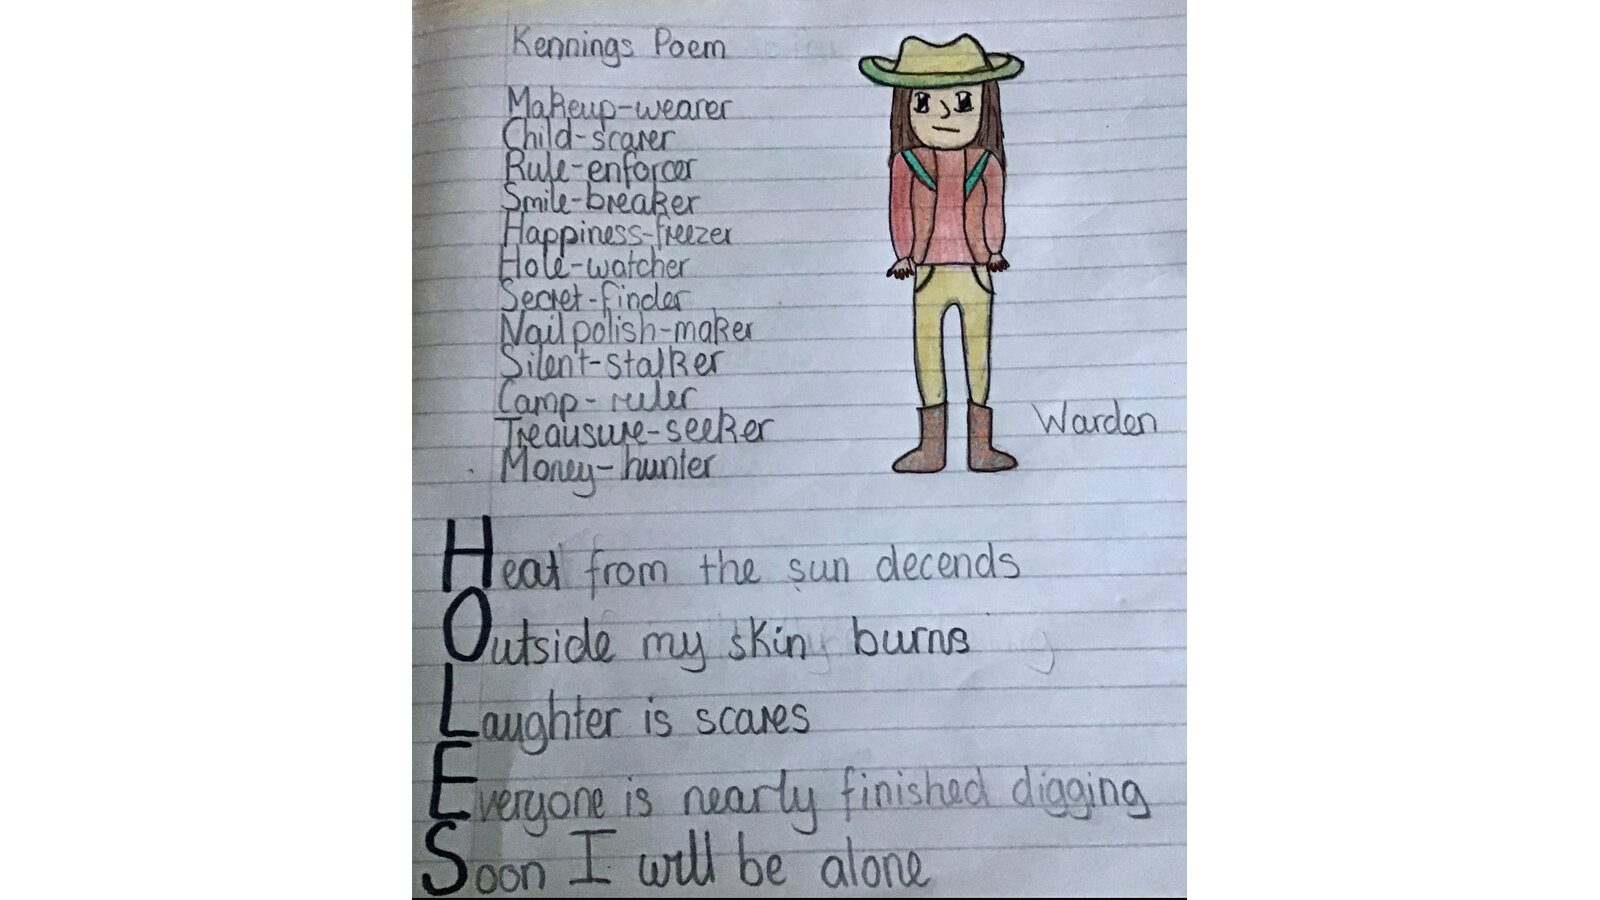 Kennings Poem
Makeup-wearer
Child-scarer
Rule-enforcer
Smile-breaker
Happiness-freezer
Hole-watcher
Secret-finder
Nail polish-maker
Silent-stalker
Camp-ruler
Treausure-seeker
Money-hunter
Warden
Heat from the sun decends
Outside my skin burns
Laughter is scares
Everyone is nearly finished digging
Soon I will be alone